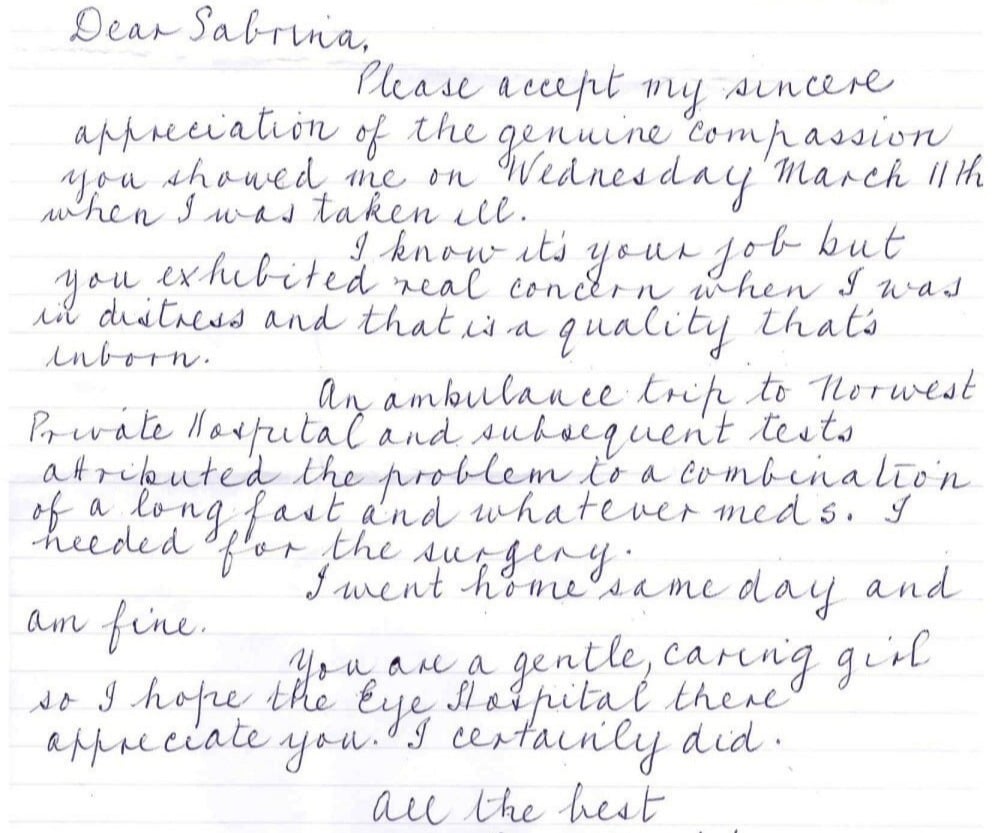 Dear Sabrina,
Please accept my sincere
appreciation of the genuine compassion
you showed me on Wednesday March 11th
when I was taken ill.
I know it's your job but
you exhibited real concern when I was
in distress and that is a quality that's
inborn.
An ambulance trip to Norwest
Private Hospital and subsequent tests
attributed the problem to a combination
of a long fast and whatever meds. I
needed for the surgery.
I went home same day and
am fine.
You are a gentle, caring girl
so I hope the Eye Hospital there
appreciate you. I certainly did.
All the best